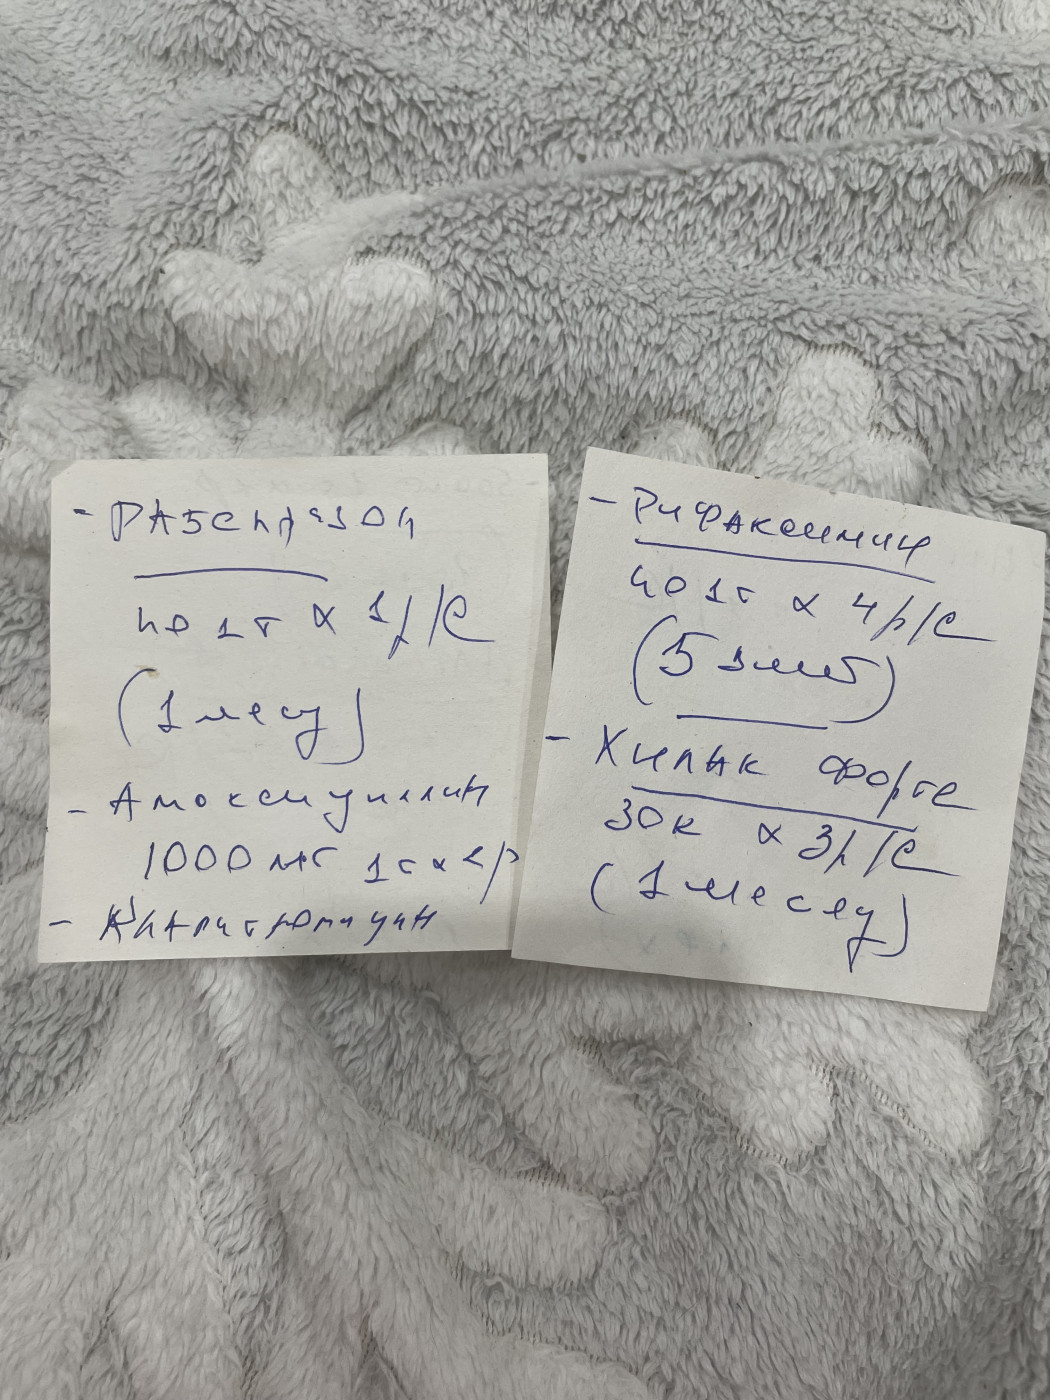 - Рабепразол
по 1т х 1р/с
(1 месяц)
- Амоксициллин
1000 мг 1т х 2р
- Кларитромицин
- Рифаксимин
по 1т х 4р/с
(5 дней)
- Хилак форте
30к х 3р/с
(1 месяц)